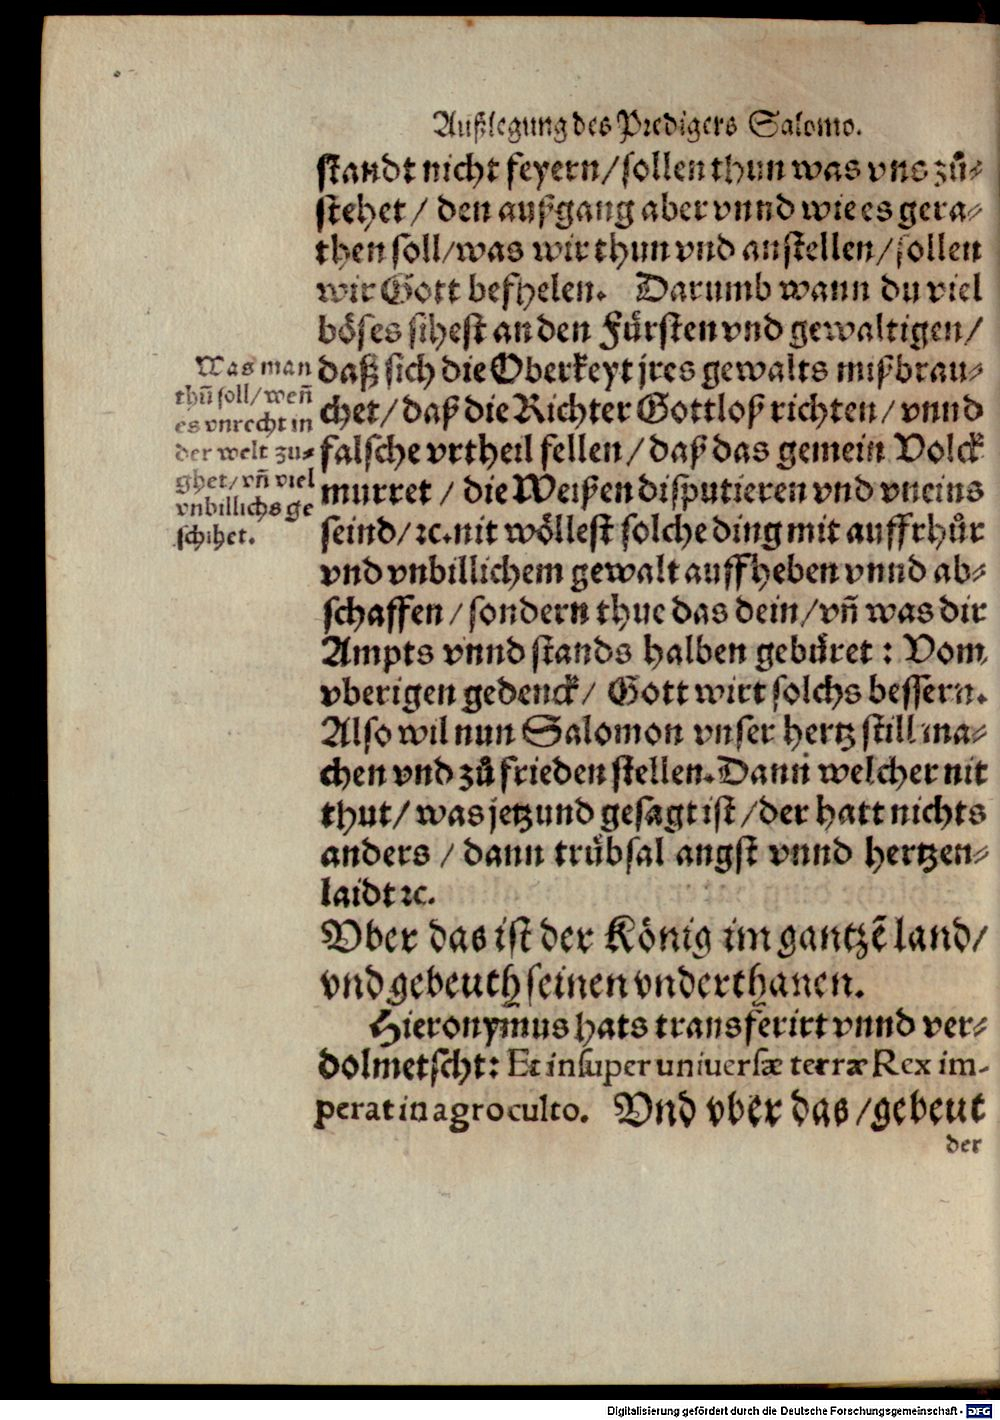 Außlegung des Predigers Salomo.
standt nicht feyern/sollen thun was vns zů-
stehet/ den außgang aber vnnd wie es gera-
then soll/was wir thun vnd anstellen/sollen
wir Gott befhelen. Darumb wann du viel
böses sihest an den Fürsten vnd gewaltigen/
daß sich die Oberkeyt jres gewalts mißbrau-
chet/daß die Richter Gottloß richten/vnnd
falsche vrtheil fellen/daß das gemein Volck
murret/die Weißen disputieren vnd vneins
seind/ꝛc. nit wöllest solche ding mit auffrhůr
vnd vnbillichem gewalt auffheben vnnd ab-
schaffen/sondern thue das dein/vñ was dir
Ampts vnnd stands halben gebüret: Vom
vberigen gedenck/ Gott wirt solchs bessern.
Also wil nun Salomon vnser hertz still ma-
chen vnd zů frieden stellen. Dann welcher nit
thut/was jetzund gesagt ist/der hatt nichts
anders/dann trübsal angst vnnd hertzen-
laidt ꝛc.
Was man
thuñ soll/weñ
es vnrecht in
der welt zu-
ghet/vñ viel
vnbillichs ge
schihet.
Vber das ist der König im gantzẽ land/
vnd gebeuth seinen vnderthanen.
Hieronymus hats transferirt vnnd ver-
dolmetscht: Et insuper uniuersæ terræ Rex im-
perat in agro culto. Vnd vber das/gebeut
der
Digitalisierung gefördert durch die Deutsche Forschungsgemeinschaft - DFG